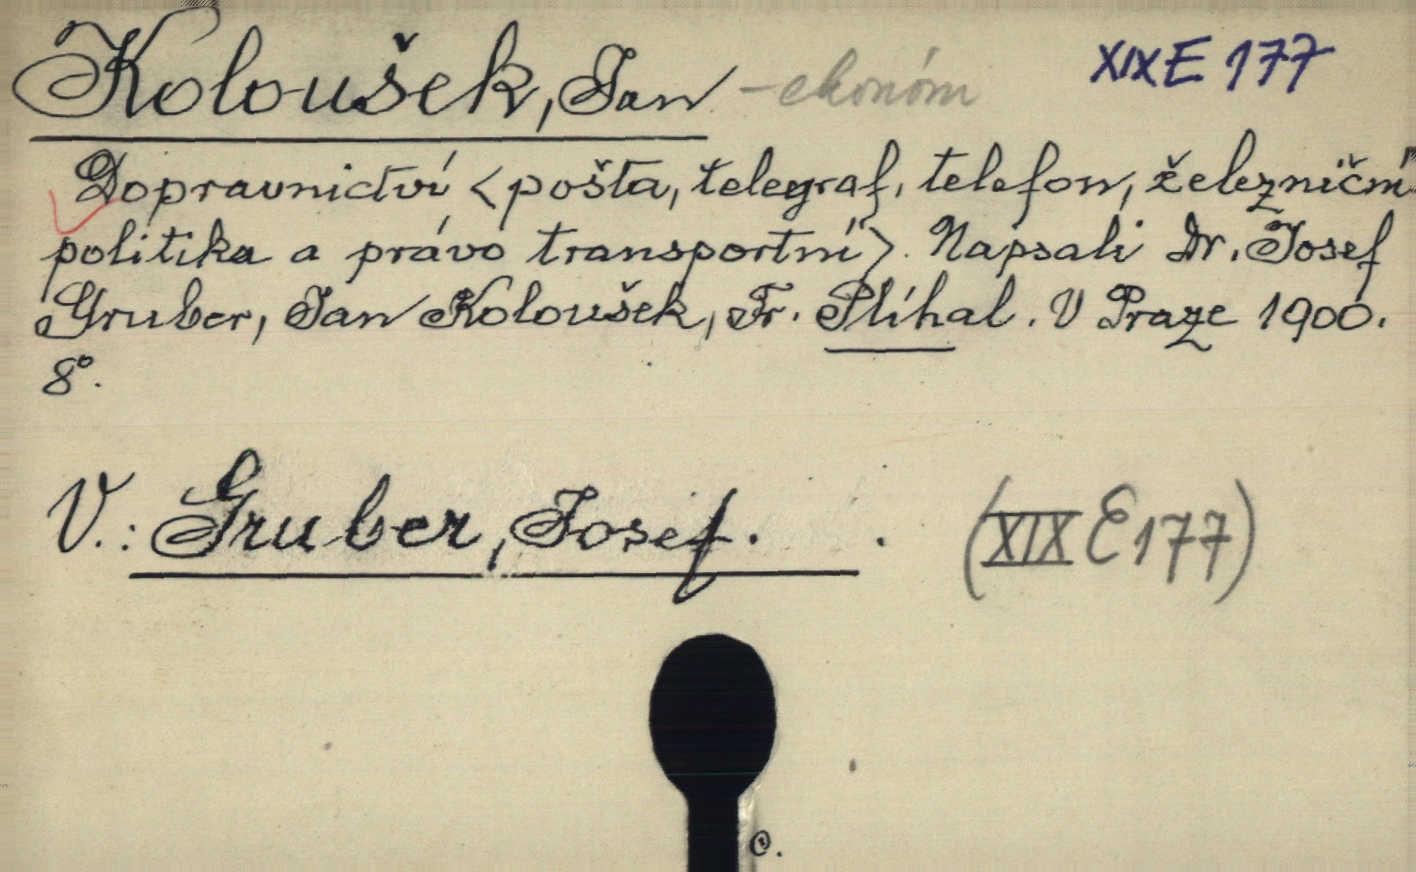 Koloušek, Jan - ekonóm XIX E 177
Dopravnictví <pošta, telegraf, telefon, železniční
politika a právo transportní>. Napsali Dr. Josef
Gruber, Jan Koloušek, Fr. Plíhal. V Praze 1900.
8°.
V.: Gruber, Josef. . (XIX E 177)